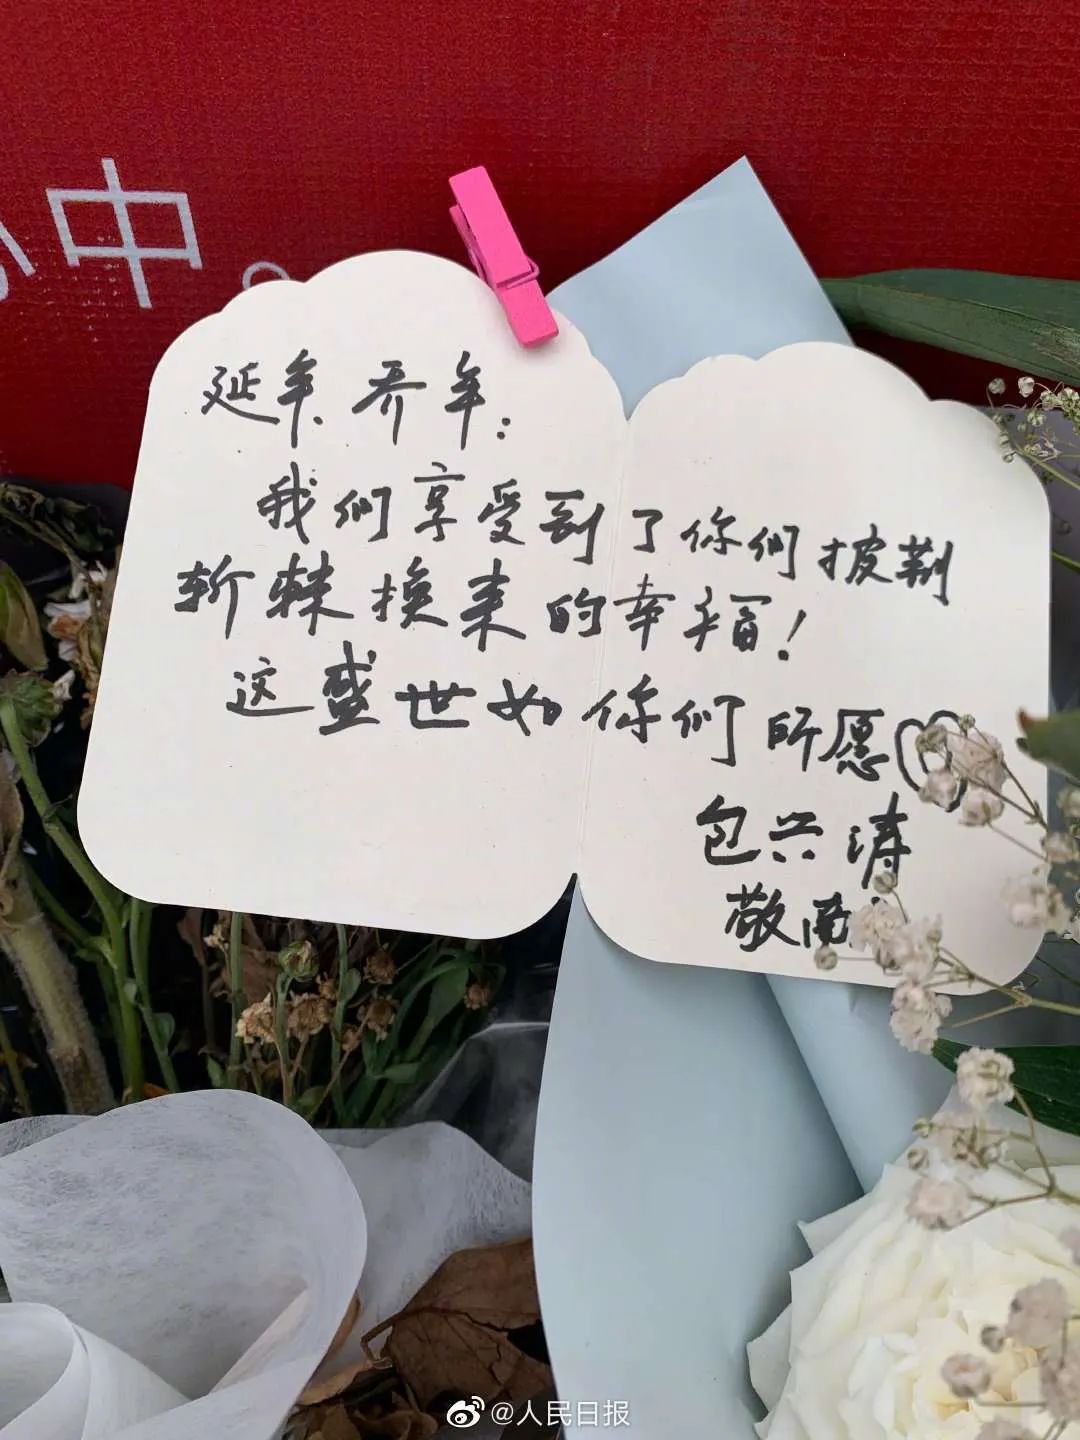 中。
延年、乔年:
我们享受到了你们披荆
斩棘换来的幸福!
这盛世如你们所愿
包兴涛
敬
@人民日报